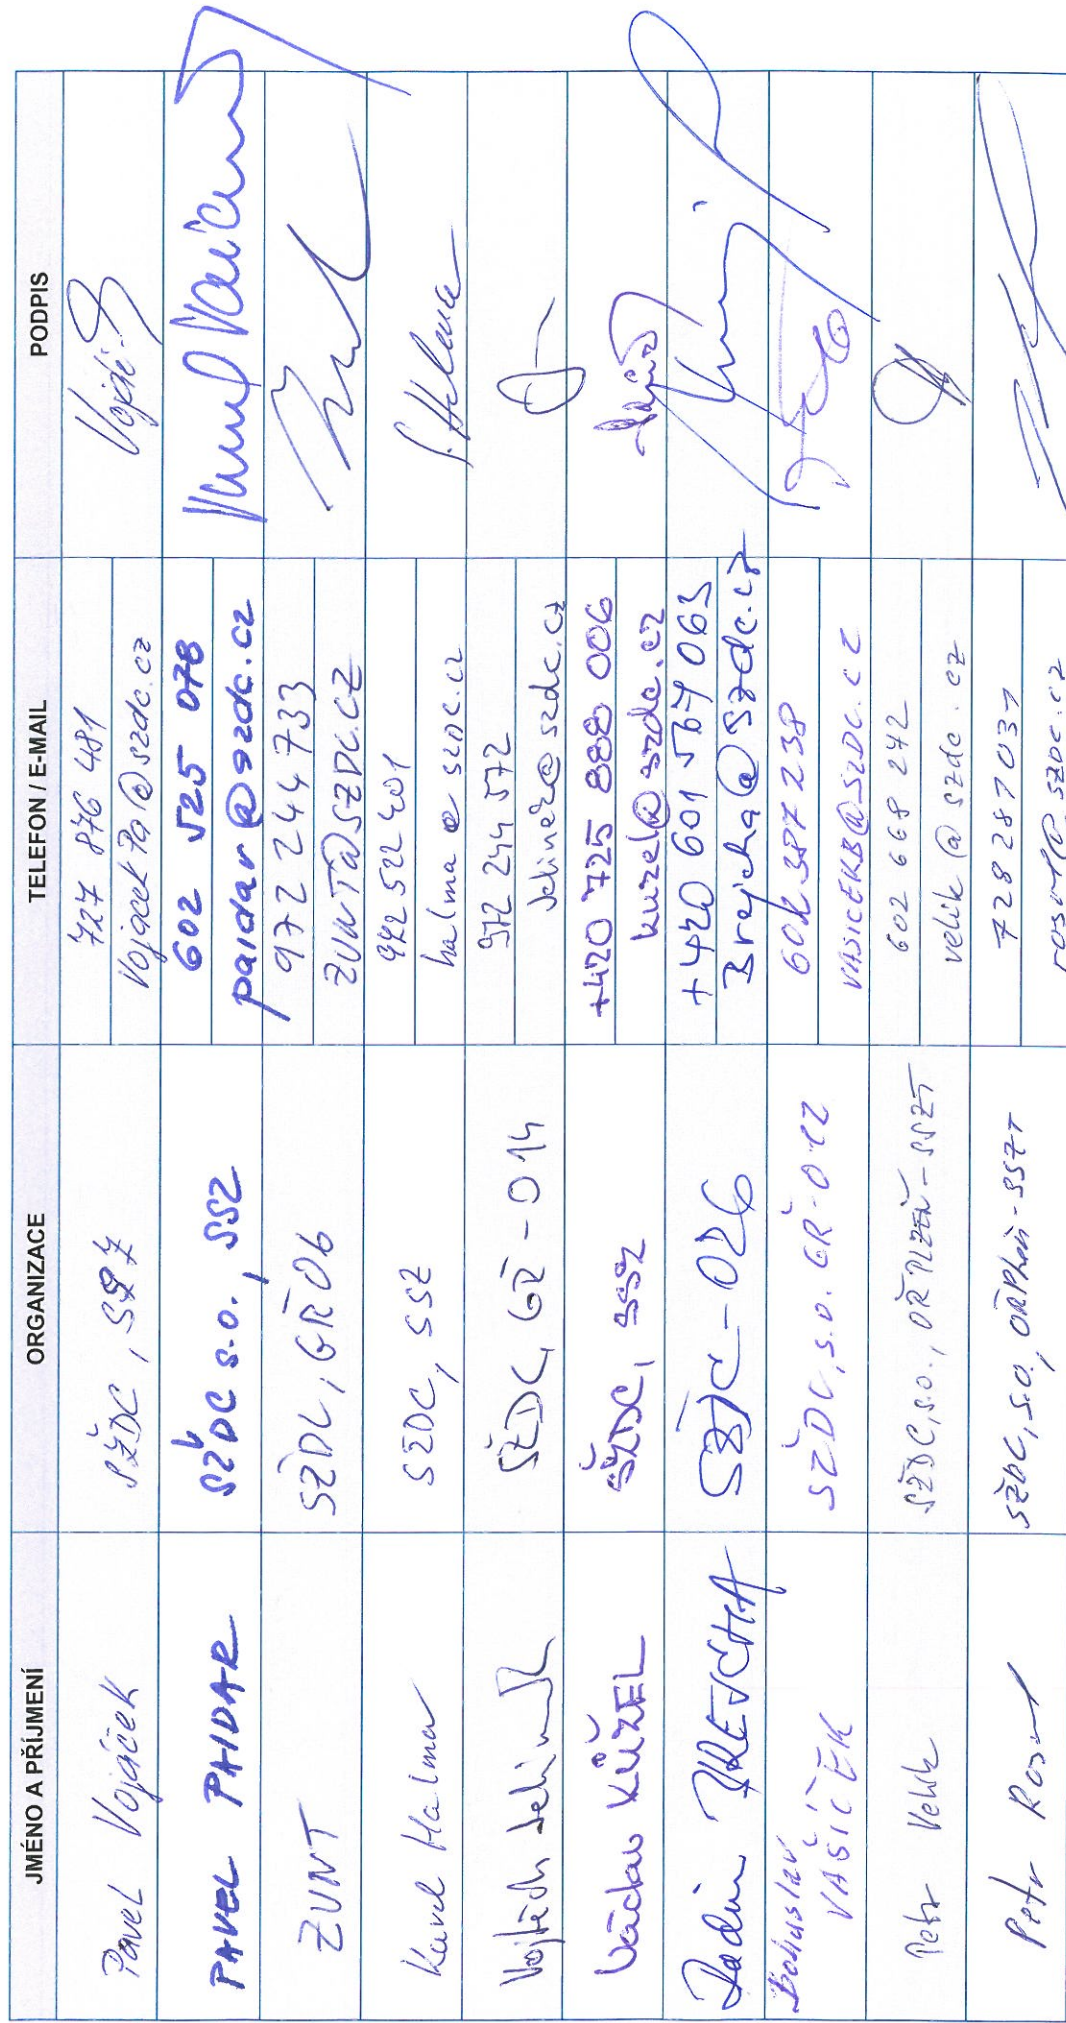 JMÉNO A PŘÍJMENÍ ORGANIZACE TELEFON / E-MAIL PODPIS
Pavel Vojáček SŽDC, SSZ 727 876 481
VojacekPa@szdc.cz
PAVEL PAIDAR SŽDC s.o., SSZ 602 525 078
paidar@szdc.cz
ZUNT SŽDC, GŘ 06 972 244 733
ZUNT@SZDC.CZ
Karel Halma SŽDC, SSZ 972 522 401
halma@szdc.cz
Vojtěch SŽDC, GŘ-014 972 244 572
@szdc.cz
Václav KŮŽEL SŽDC, SSZ +420 725 888 006
kuzel@szdc.cz
Radim BREJCHA SŽDC-026 +420 601 567 063
Brejcha@szdc.cz
Bohuslav VAŠÍČEK SŽDC, s.o. GŘ-012
VASICEKB@SZDC.CZ
Petr Velík SŽDC, s.o., OŘ PLZEŇ-SSZT 602 668 242
velik@szdc.cz
Petr SŽDC, s.o., OŘ Plzeň-SSZT 728 287 037